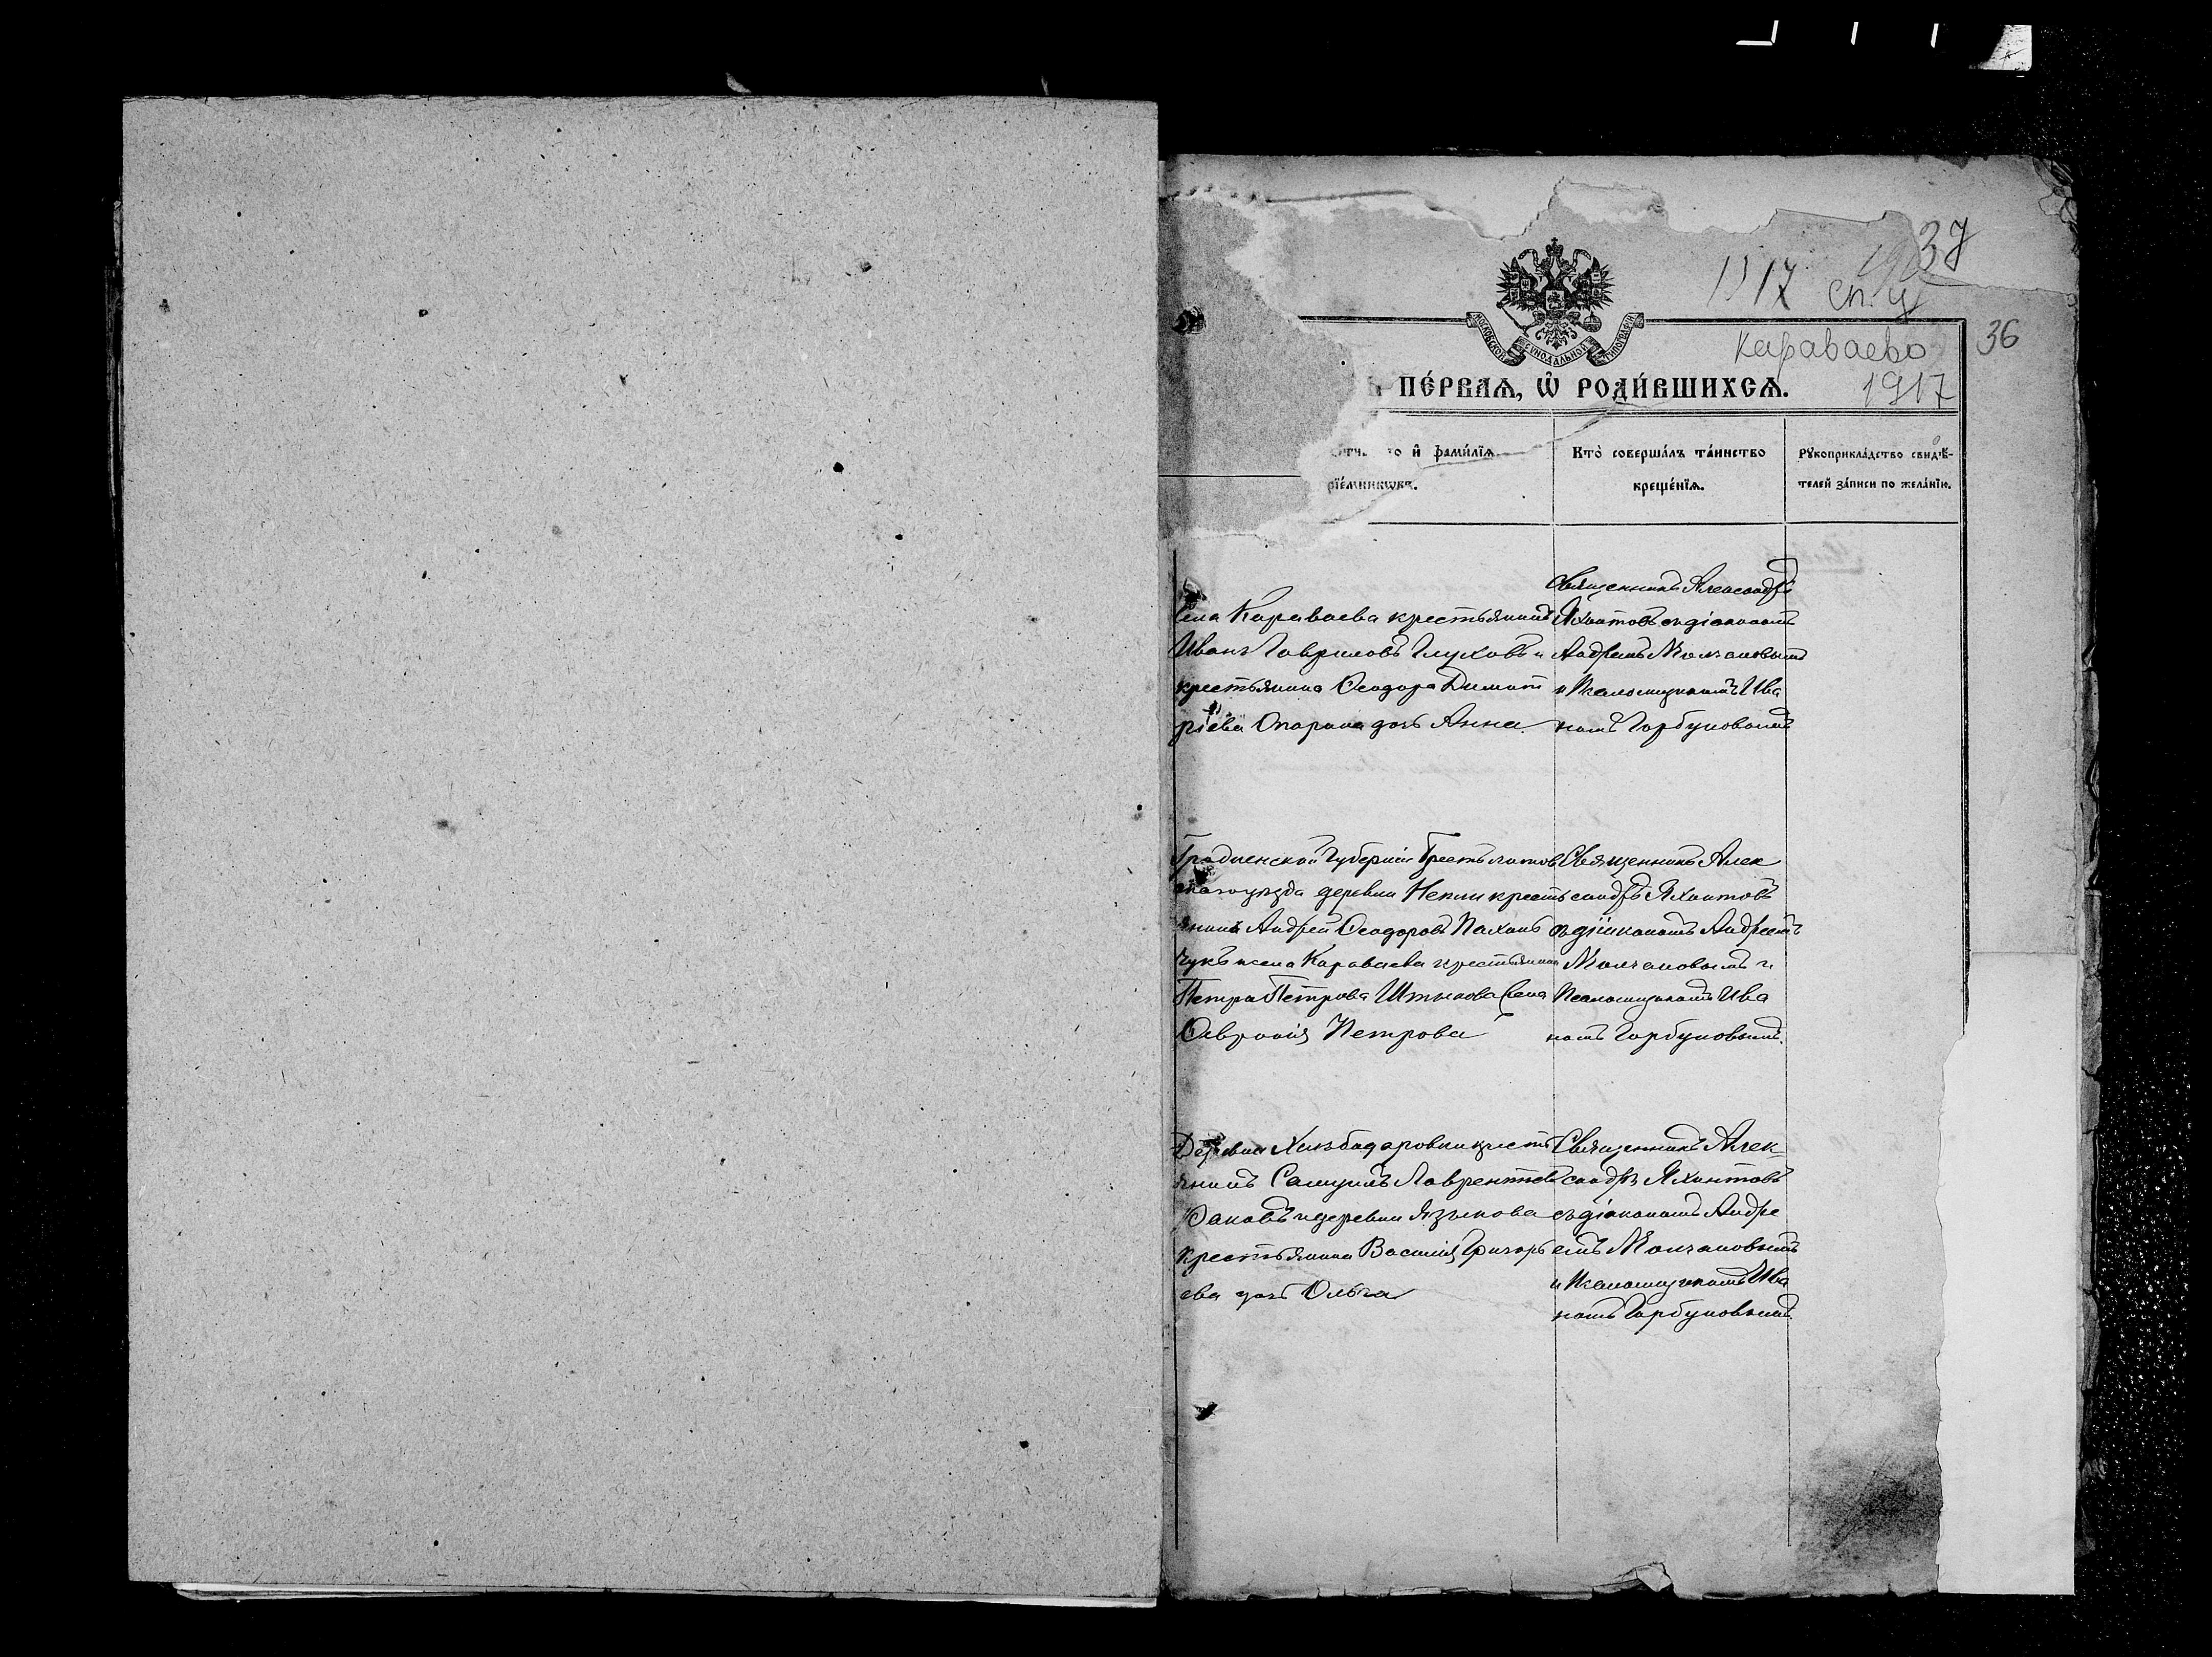 37
1917 сп. ц
36
Караваево
1917
МОСКОВСКОЙ СѴНОДАЛЬНОЙ ТИПОГРАФІИ
ПЕ́РВАЯ, Ѡ҆ РОДИ́ВШИХСЯ.
и҆ фами́лїѧ
рїе́мникѡвъ.
Кто̀ соверша́лъ та́инство
креще́нїѧ.
Рꙋкоприкла́дство свидѣ́-
телей за́писи по жела́нїю.
Села Караваева крестьянинъ
Иванъ Гавриловъ Глуховъ и
крестьянина Ѳеодора Димит
ріева Опарина дочь Анна
Священникъ Александръ
Яхонтовъ съ діакономъ
Андреемъ Молчановымъ
и Псаломщикомъ Ива
номъ Горбуновымъ
Гродненской Губерніи Брестълитов
скаго уѣзда деревни Непли кресть
янинъ Андрей Ѳеодоровъ Пахом
чукъ и села Караваева крестьянина
Петра Петрова Штыкова жена
Ѳеврония Петрова
Священникъ Алек
сандръ Яхонтовъ
съ діакономъ Андреемъ
Молчановымъ и
Псаломщикомъ Ива
номъ Горбуновымъ.
Деревни кресть
янинъ Самуилъ Лаврентьевъ
и деревни Языкова
крестьянина Василія Григорь
ева дочь Ольга
Священникъ Алек-
сандръ Яхонтовъ
съ діакономъ Андре
емъ Молчановымъ
и Псаломщикомъ Ива
номъ Горбуновымъ.